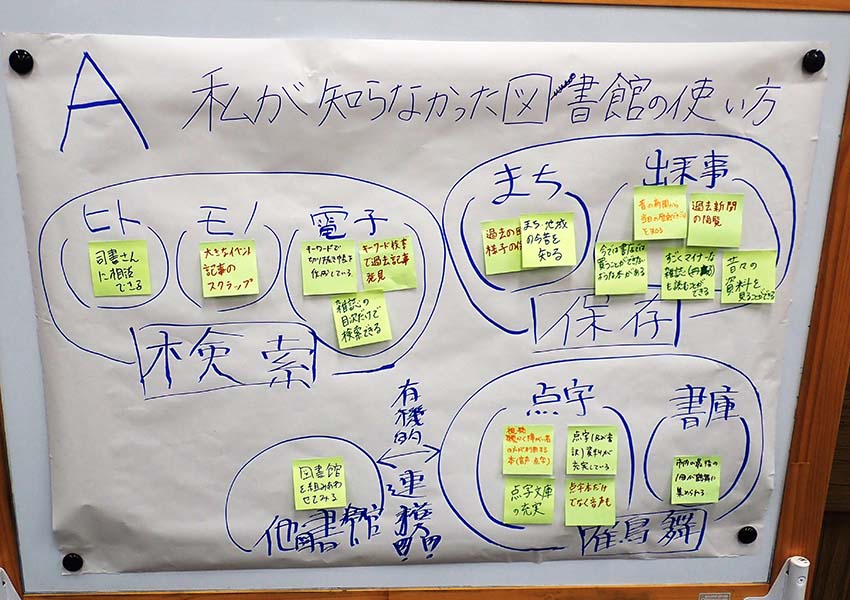 A
私が知らなかった図書館の使い方
ヒト
司書さん
に相談
できる
モノ
大きなイベント
記事の
スクラップ
電子
キーワードで
切り抜き帳を
作成している
キーワード検索
で過去記事
発見
雑誌の
目次だけで
検索できる
検索
まち
過去の
様子の
まち・地域
の今昔を
知る
出来事
昔の新聞から
当日の
を知る
過去新聞
の閲覧
今では書店では
買うことができない
ような本がある
すごくマイナーな
雑誌
を読むことが
できる
昔々の
資料を
見ることができる
保存
有機的
連携
!!
他図書館
図書館
を組みあわ
せてみる
点字
視覚
本(音声 点字)
点字
訳)資料が
充実している
点字文庫
の充実
点字本だけ
でなく音声も
書庫
市内の最後の
1冊が鶴舞に
集められる
鶴舞